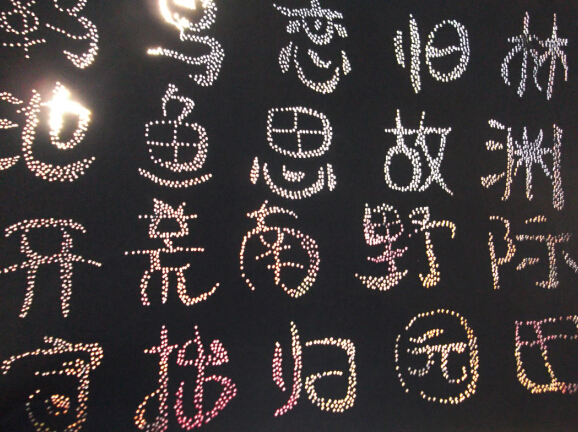 羁鸟恋旧林
池鱼思故渊
开荒南野际
守拙归园田